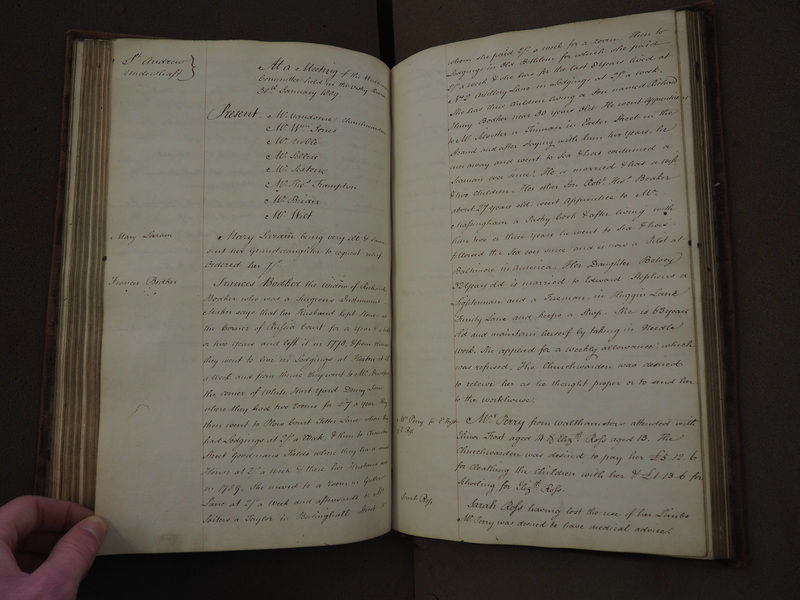 St. Andrew
Undershaft
At a Meeting of the
Committee held in the Vestry Room
30th January 1809
Present Mr Vandome Churchwarden
Mr Wm Jones
Mr Noble
Mr Sellen
Mr
Mr Thos Frampton
Mr Briair
Mr Wiet
Mary
Mary being very ill &
sent her Granddaughter to request
Ordered her 7/-
Frances Booker
Frances Booker the widow of Richard
Booker who was a Surgeons Instrument
Maker says that her Husband kept House at
the corner of Russia Court for a year &
or two years and left it in 1778, & from thence
they went to live in Lodgings at
a week and from thence they went to Mr
the corner of White Hart Yard Drury Lane
where they had two rooms for £7 a year they
then went to Court Fetter Lane where they
had Lodgings at 2/ a week, & then to
Street Goodmans Fields where they had a
House at 5/ a week & there her Husband died
in 1789. She moved to a room in
Lane at 2/ a week and afterwards to Mr
a Taylor in Basinghall Street to
whom she paid 2/ a week for a room then to
Lodgings in Old Bethlem for which she paid
2/ a week & she has for the last 8 years lived at
No 2 Lane in Lodgings at 2/ a week.
She has three children living a Son named Richard
Henry Booker near 30 years old. He went Apprentice
to Mr a Tinman in Exeter Street in the
Strand and after staying with him two years, he
ran away and went to Sea & has continued a
Seaman ever since. He is married & has a wife
& two children. Her other Son Robt. Thos. Booker
about 27 years old went Apprentice to Mr
a Pastry Cook & after living with
him two or three years he went to Sea & has
followed the Sea ever since and is now a Pilot at
Baltimore in America. Her Daughter Betsey
32 years old is married to Edward Stephens a
Lighterman and a Freeman, in Huggin Lane
Trinity Lane and keeps a Shop. She is 63 years
old and maintains herself by taking in Needle
work. She applied for a weekly allowance which
was refused, The Churchwarden was desired
to relieve her as he thought proper or to send her
to the workhouse.
Mrs Perry
Ross
Mrs Perry from Walthamstow attended with
Elinor Frost aged 14 & Elizth Ross aged 13. The
Churchwarden was desired to pay her £5.12.6
for cloathing the Children with her & £1.13.6 for
Schooling for Elizth Ross.
Sarah Ross
Sarah Ross having lost the use of her Limbs
Mr Perry was desired to have medical advice